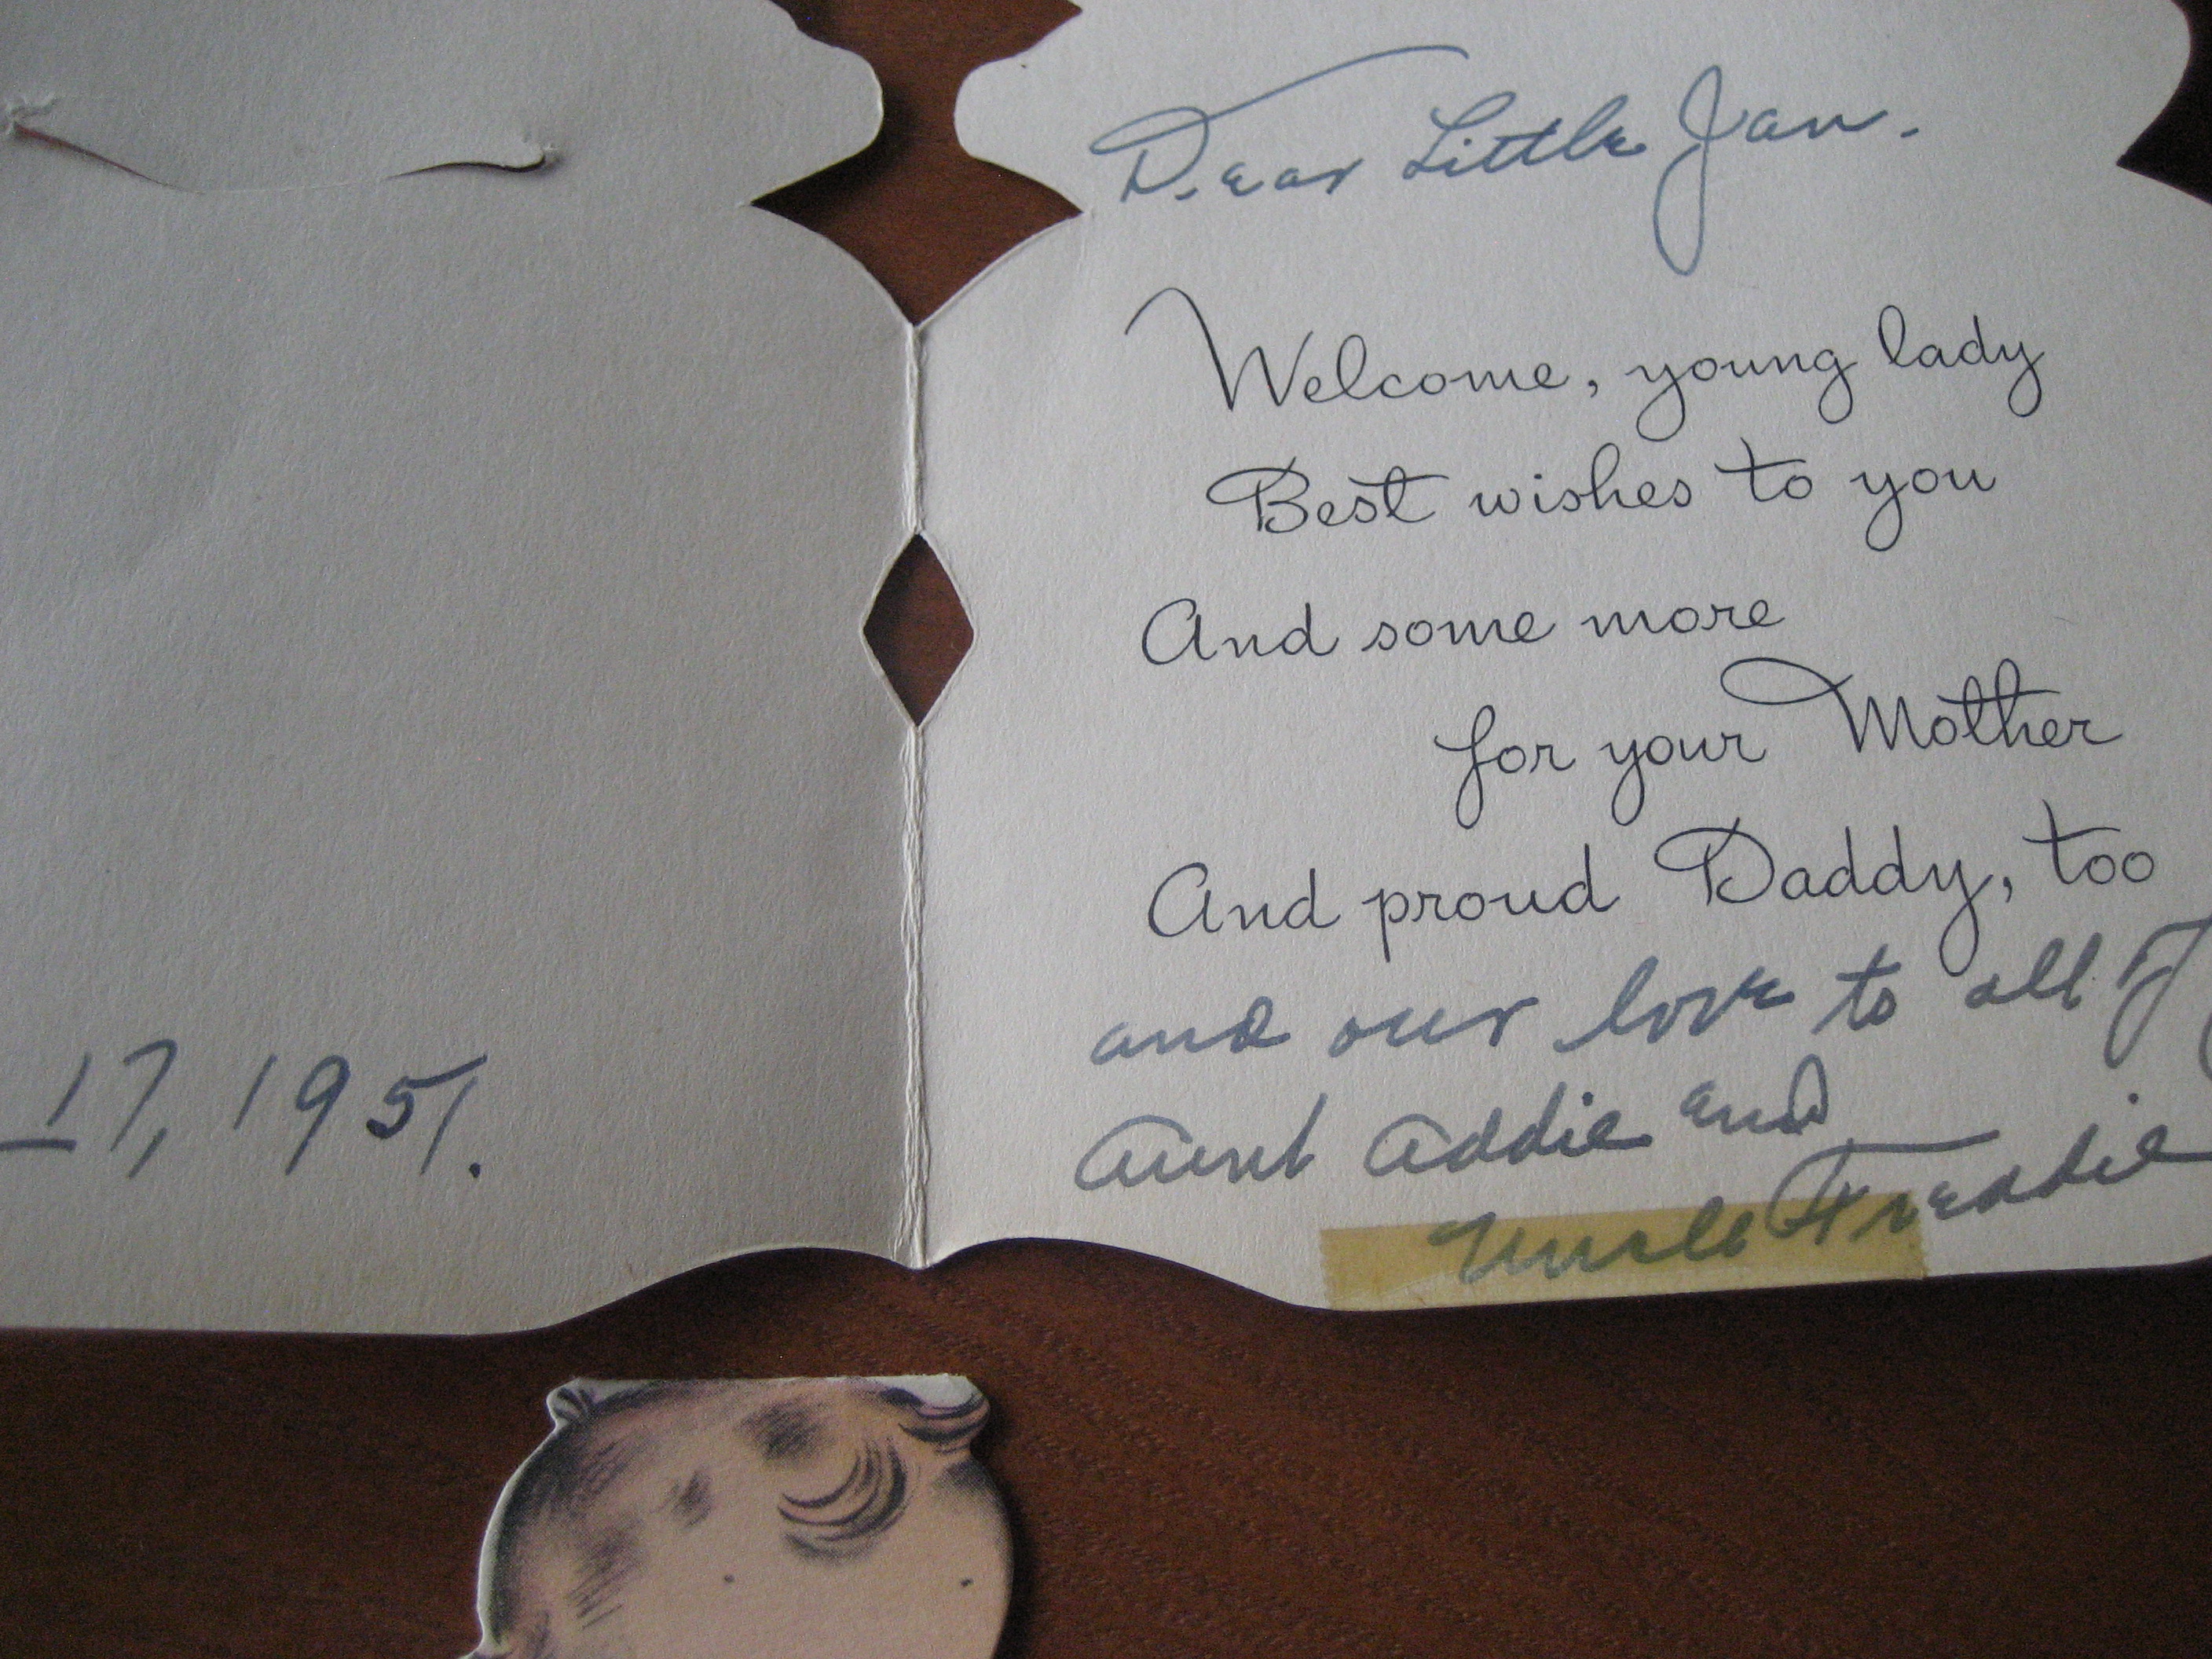 17, 1951.
Dear Little Jan.
Welcome, young lady
Best wishes to you
And some more
for your Mother
And proud Daddy, too
and our love to all of
Aunt Addie and
Uncle Freddie